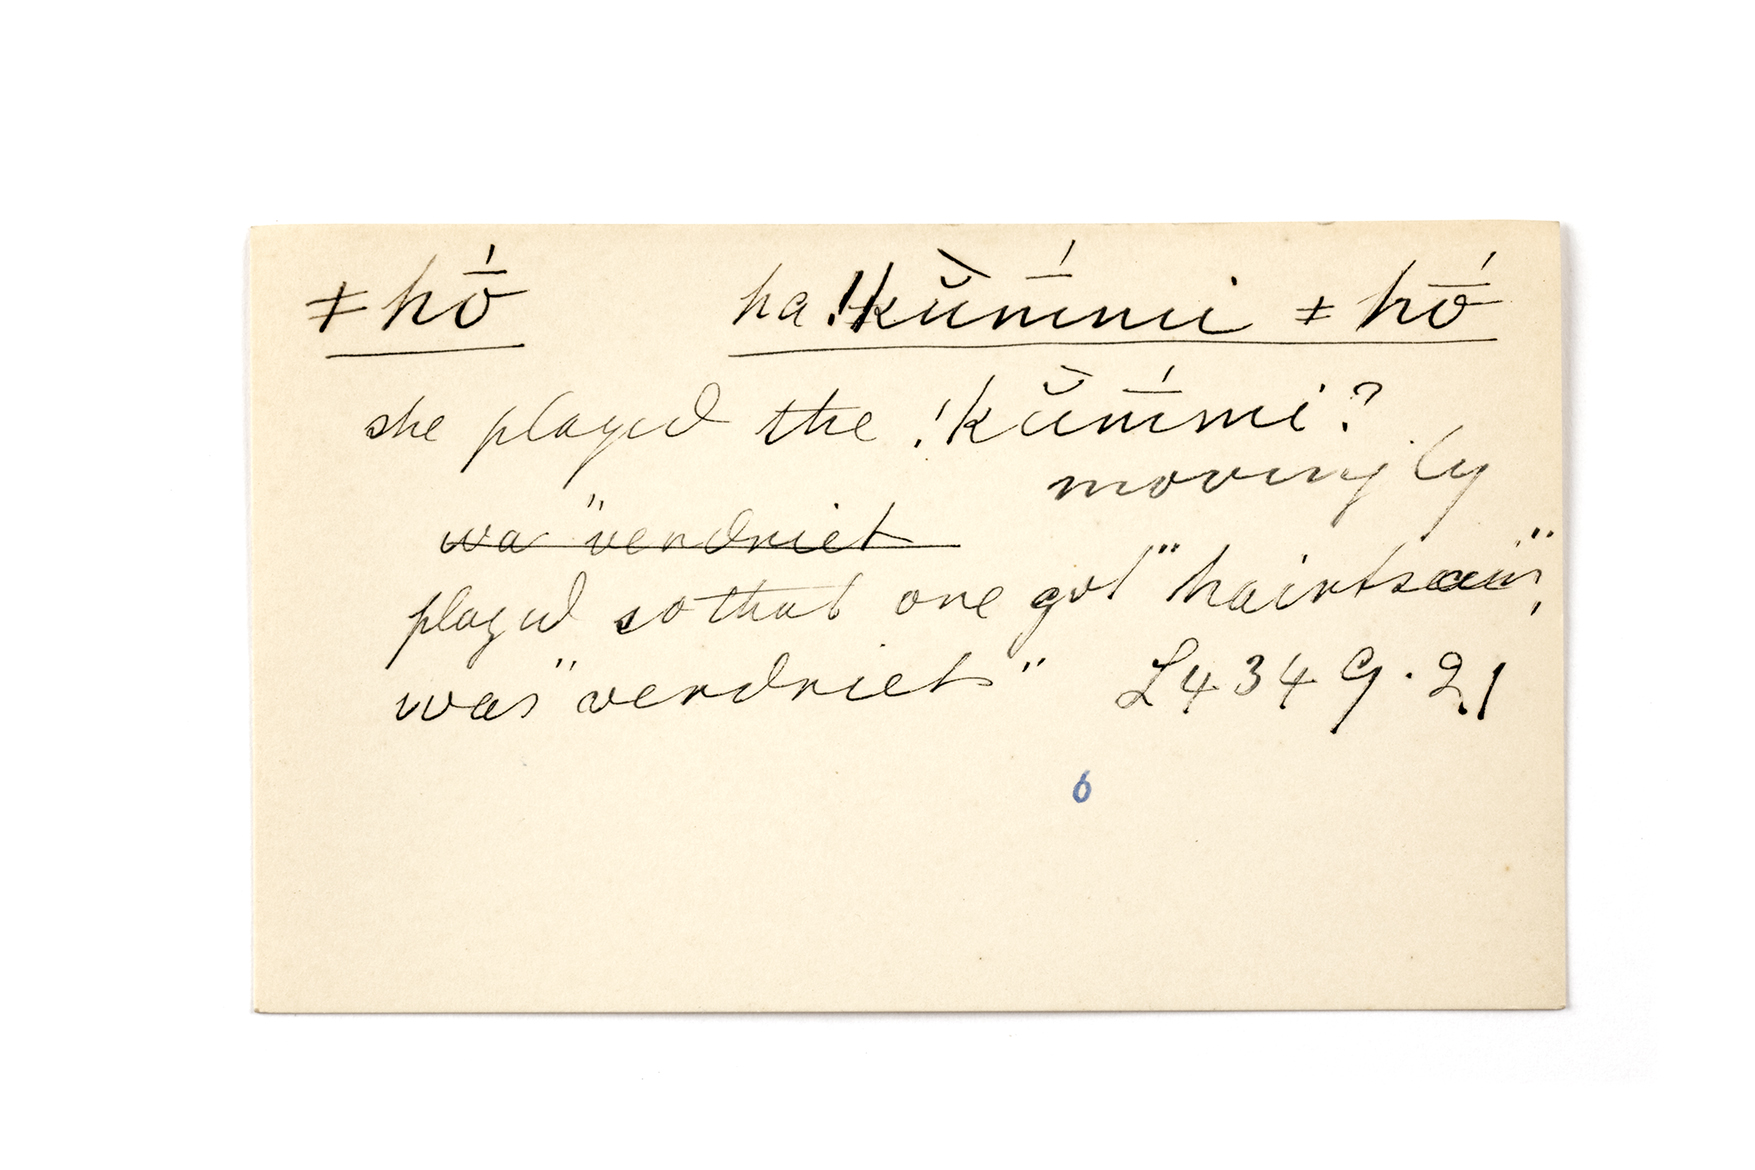 ǂhṓ   ha !kŭ̀mḿi ǂhṓ
she played the !kŭ̀mḿi?
movingly
wa "verdriet
played so that one got "hairtsaai",
was "verdriet" L434 9.21
6